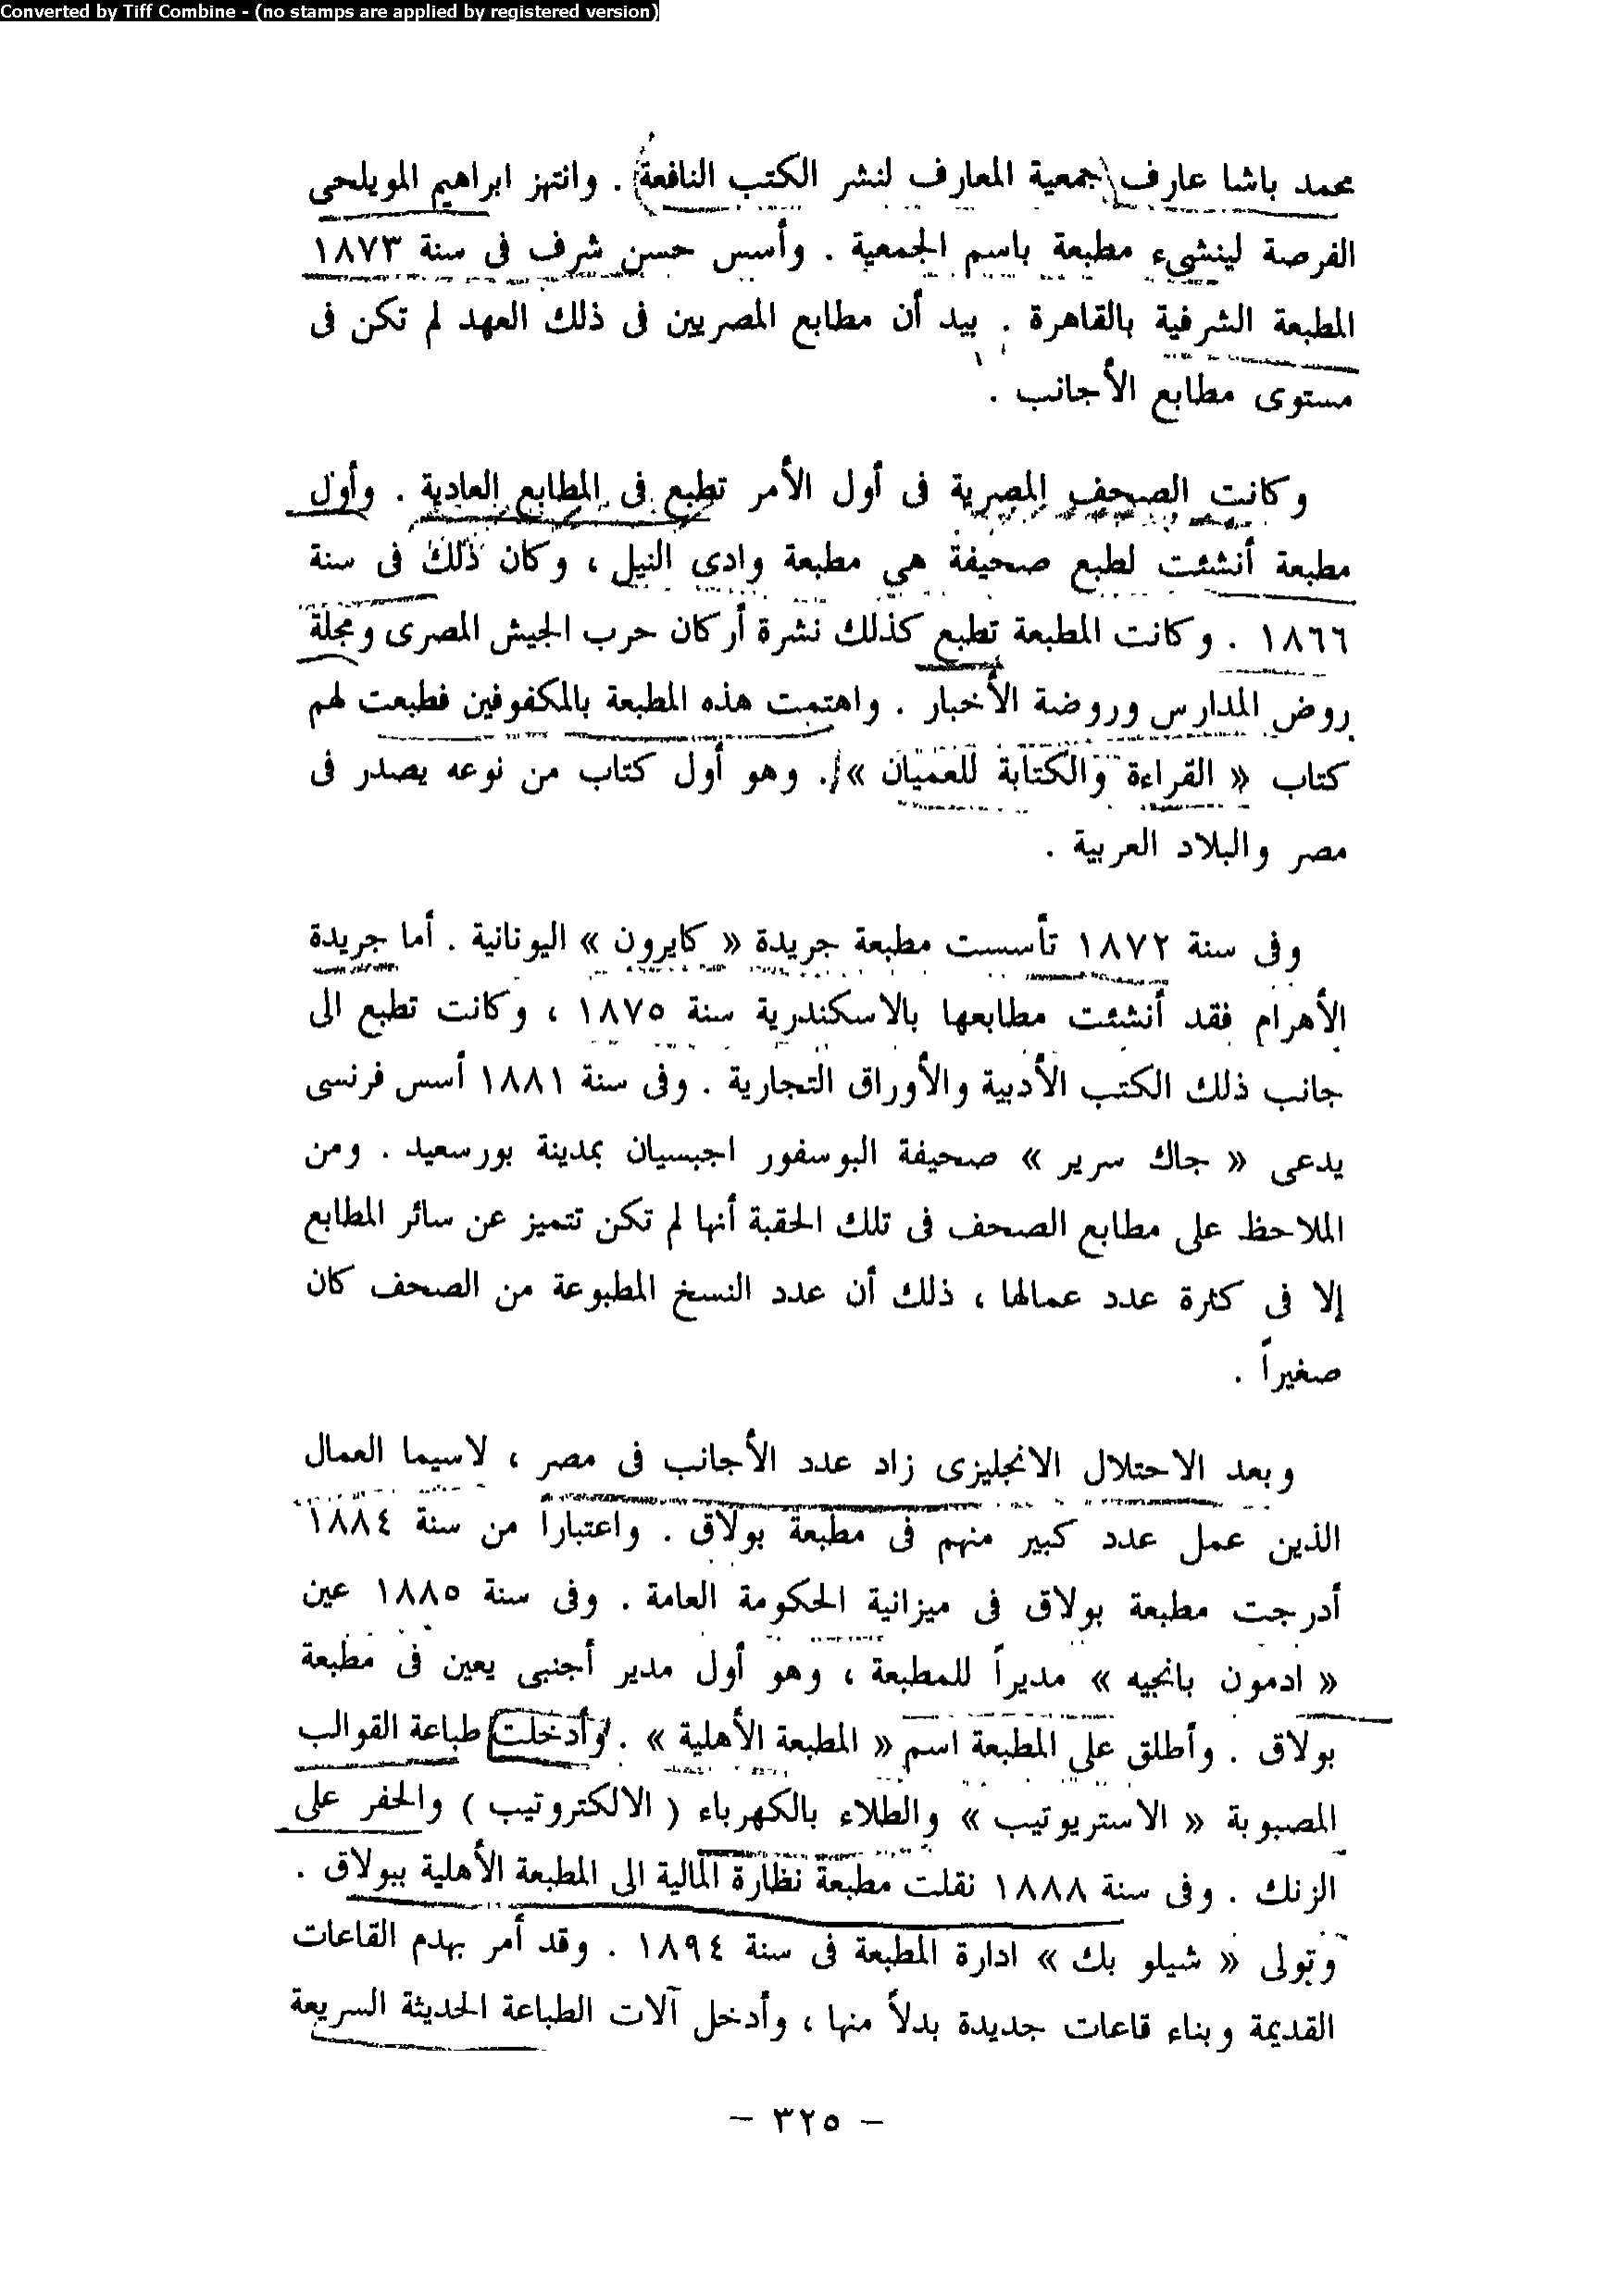 Converted by Tiff Combine - (no stamps are applied by registered version)
محمد باشا عارف (جمعية المعارف لنشر الكتب النافعة) . وانتهز ابراهيم المويلحى
الفرصة لينشىء مطبعة باسم الجمعية . وأسس حسن شرف فى سنة ١٨٧٣
المطبعة الشرفية بالقاهرة . بيد أن مطابع المصريين فى ذلك العهد لم تكن فى
مستوى مطابع الأجانب .
وكانت الصحف المصرية فى أول الأمر تطبع فى المطابع العادية . وأول
مطبعة أنشئت لطبع صحيفة هي مطبعة وادى النيل ، وكان ذلك فى سنة
١٨٦٦ . وكانت المطبعة تطبع كذلك نشرة أركان حرب الجيش المصرى ومجلة
روض المدارس وروضة الأخبار . واهتمت هذه المطبعة بالمكفوفين فطبعت لهم
كتاب « القراءة والكتابة للعميان » . وهو أول كتاب من نوعه يصدر فى
مصر والبلاد العربية .
وفى سنة ١٨٧٢ تأسست مطبعة جريدة « كايرون » اليونانية . أما جريدة
الأهرام فقد أنشئت مطابعها بالاسكندرية سنة ١٨٧٥ ، وكانت تطبع الى
جانب ذلك الكتب الأدبية والأوراق التجارية . وفى سنة ١٨٨١ أسس فرنسى
يدعى « جاك سرير » صحيفة البوسفور اجبسيان بمدينة بورسعيد . ومن
الملاحظ على مطابع الصحف فى تلك الحقبة أنها لم تكن تتميز عن سائر المطابع
إلا فى كثرة عدد عمالها ، ذلك أن عدد النسخ المطبوعة من الصحف كان
صغيراً .
وبعد الاحتلال الانجليزى زاد عدد الأجانب فى مصر ، لاسيما العمال
الذين عمل عدد كبير منهم فى مطبعة بولاق . واعتباراً من سنة ١٨٨٤
أدرجت مطبعة بولاق فى ميزانية الحكومة العامة . وفى سنة ١٨٨٥ عين
« ادمون بانجيه » مديراً للمطبعة ، وهو أول مدير أجنبى يعين فى مطبعة
بولاق . وأطلق على المطبعة اسم « المطبعة الأهلية » . وأدخلت طباعة القوالب
المصبوبة « الاستريوتيب » والطلاء بالكهرباء ( الالكتروتيب ) والحفر على
الزنك . وفى سنة ١٨٨٨ نقلت مطبعة نظارة المالية الى المطبعة الأهلية ببولاق .
وتولى « شيلو بك » ادارة المطبعة فى سنة ١٨٩٤ . وقد أمر بهدم القاعات
القديمة وبناء قاعات جديدة بدلاً منها ، وأدخل آلات الطباعة الحديثة السريعة
– ٣٢٥ –